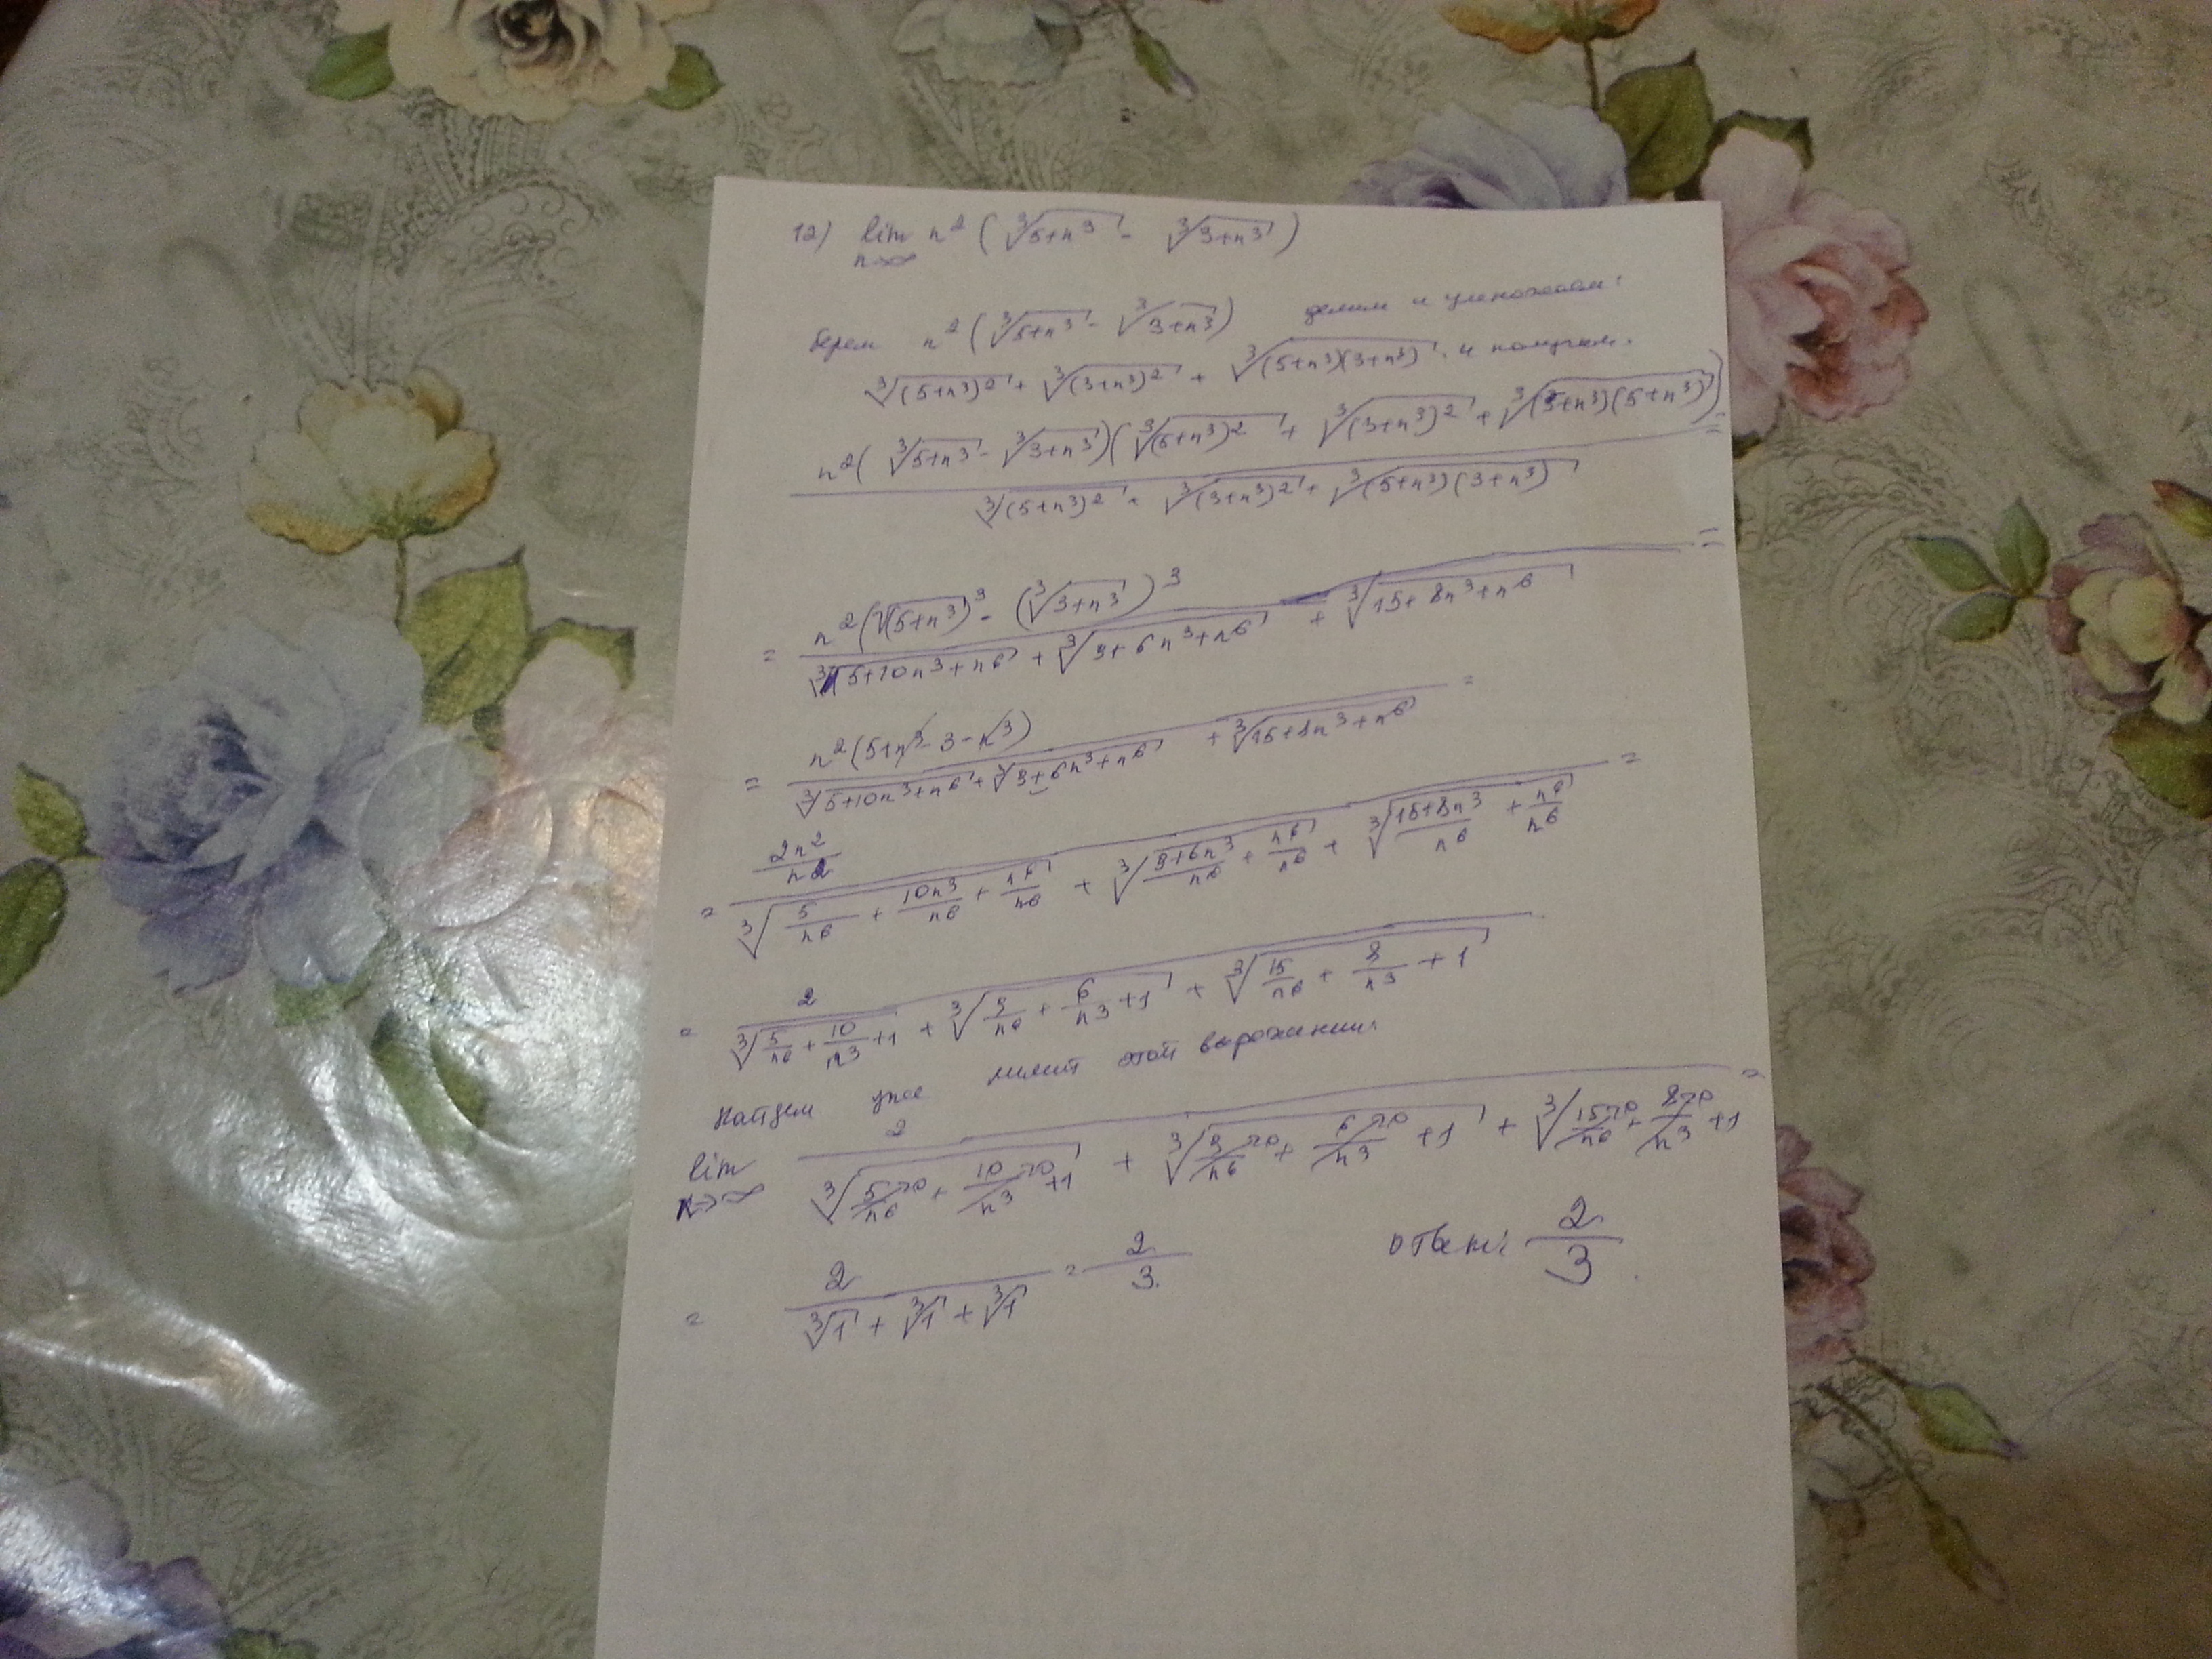 12) lim n→∞ n² (∛(5+n³) - ∛(3+n³))
берем n² (∛(5+n³) - ∛(3+n³)) делим и умножаем:
∛((5+n³)²) + ∛((3+n³)²) + ∛((5+n³)(3+n³)) и получаем.
n²(∛(5+n³) - ∛(3+n³))(∛((5+n³)²) + ∛((3+n³)²) + ∛((3+n³)(5+n³))) =
∛((5+n³)²) + ∛((3+n³)²) + ∛((5+n³)(3+n³))
= n²(√(5+n³)³ - (∛(3+n³))³ =
∛(5+10n³+n⁶) + ∛(9+6n³+n⁶) + ∛(15+8n³+n⁶)
= n²(5+n³-3-n³) =
∛(5+10n³+n⁶) + ∛(9+6n³+n⁶) + ∛(15+8n³+n⁶)
= 2n²/n² =
∛(5/n⁶ + 10n³/n⁶ + n⁶/n⁶) + ∛((9+6n³)/n⁶ + n⁶/n⁶) + ∛((15+8n³)/n⁶ + n⁶/n⁶)
= 2
∛(5/n⁶ + 10/n³ + 1) + ∛(9/n⁶ + 6/n³ + 1) + ∛(15/n⁶ + 8/n³ + 1)
Найдем уже лимит этой выражении:
lim n→∞ 2 =
∛(5/n⁶→0 + 10/n³→0 + 1) + ∛(9/n⁶→0 + 6/n³→0 + 1) + ∛(15/n⁶→0 + 8/n³→0 + 1)
= 2/(∛1 + ∛1 + ∛1) = 2/3. ответ: 2/3.